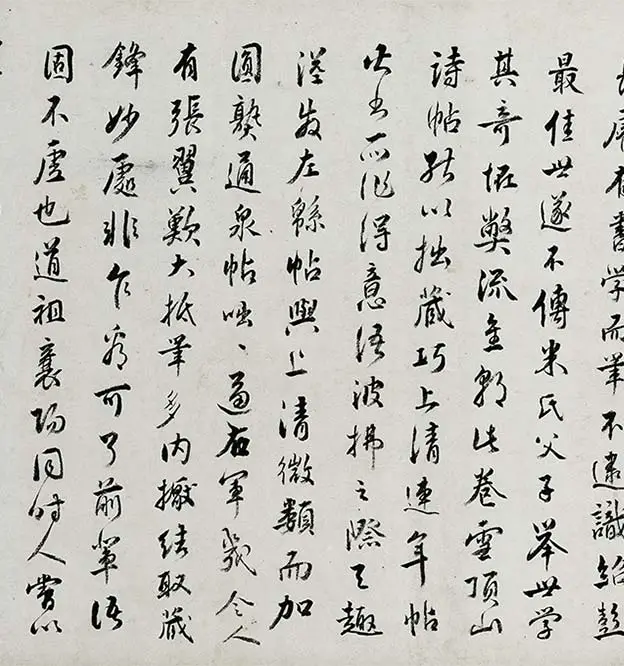 有書學而筆不逮識紹彭
最佳世遂不傳米氏父子舉世學
其奇怪弊流金朝此卷雪頂山
詩帖能以拙藏巧上清連年帖
書所作得意語波拂之際天趣
溢發左緜帖與上清微類而加
圓熟通泉帖咄〻逼右軍幾令人
有張翼歎大抵筆多內擫結取藏
鋒妙處非乍看可了前輩語
固不虛也道祖襄陽同時人嘗以